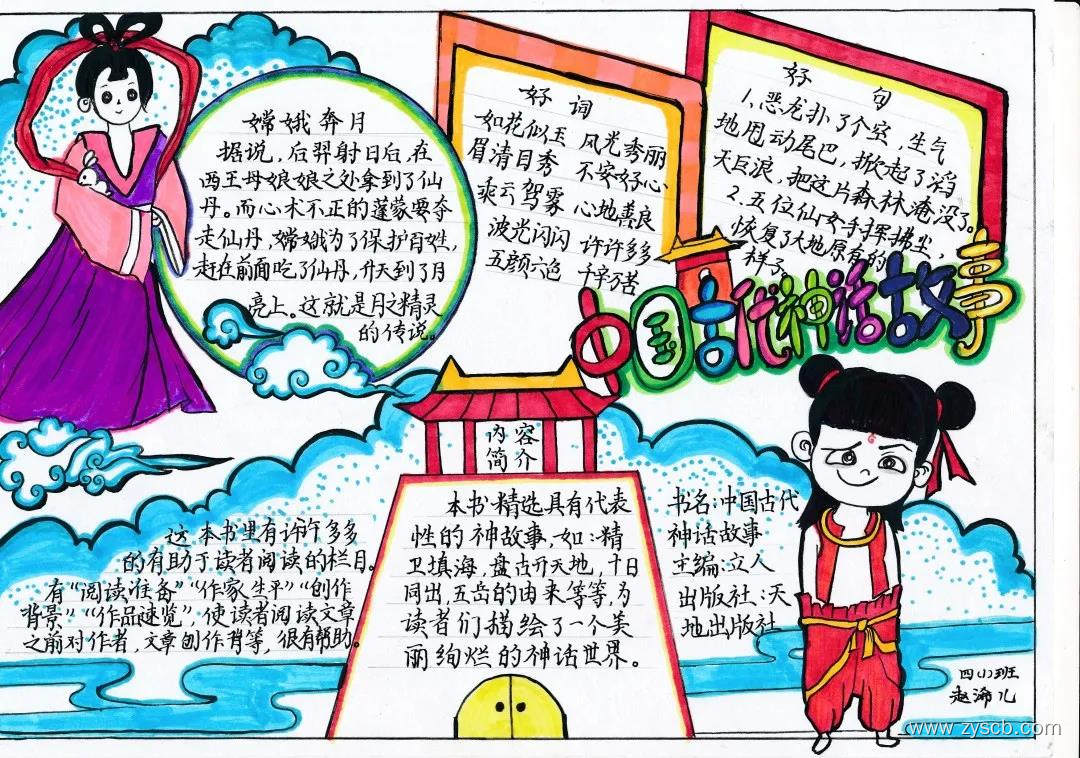 嫦娥奔月
据说，后羿射日后，在
西王母娘娘之处拿到了仙
丹。而心术不正的蓬蒙要夺
走仙丹，嫦娥为了保护百姓，
赶在前面吃了仙丹，升天到了月
亮上。这就是月之精灵
的传说。
好词
如花似玉 风光秀丽
眉清目秀 不安好心
乘云驾雾 心地善良
波光闪闪 许许多多
五颜六色 千辛万苦
好句
1、恶龙扑了个空，生气
地甩动尾巴，掀起了滔
天巨浪，把这片森林淹没了。
2、五位仙女手挥拂尘，
恢复了大地原有的
样子。
中国古代神话故事
内容
简介
本书精选具有代表
性的神故事，如：精
卫填海，盘古开天地，十日
同出，五岳的由来等等，为
读者们描绘了一个美
丽绚烂的神话世界。
书名：中国古代
神话故事
主编：立人
出版社：天
地出版社
这本书里有许许多多
的有助于读者阅读的栏目。
有“阅读准备”“作家生平”“创作
背景”“作品速览”，使读者阅读文章
之前对作者，文章创作背等，很有帮助。
四(1)班
赵沛儿
www.zyscb.com